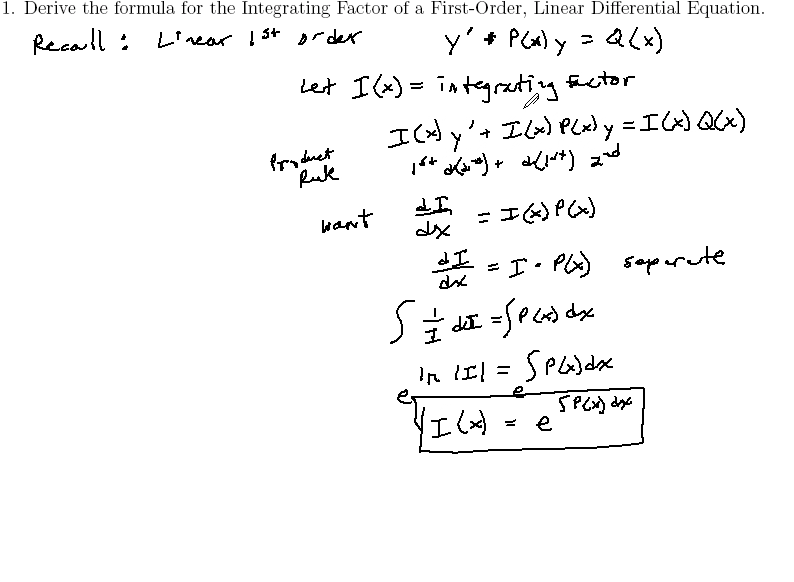 1. Derive the formula for the Integrating Factor of a First-Order, Linear Differential Equation.
Recall : Linear 1st order y' + P(x) y = Q(x)
Let I(x) = integrating factor
I(x) y' + I(x) P(x) y = I(x) Q(x)
Product Rule 1st d(2nd) + d(1st) 2nd
want dI/dx = I(x) P(x)
dI/dx = I · P(x) separate
∫ 1/I dI = ∫ P(x) dx
ln |I| = ∫ P(x) dx
e e
I(x) = e^∫P(x) dx